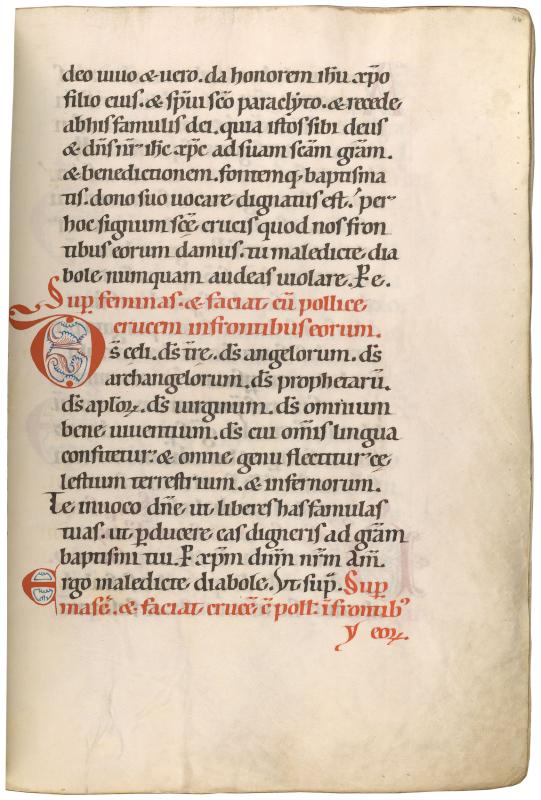 46
deo uiuo & uero. da honorem ihu xpo
filio eius. & spui sco paraclyto. & recede
abhis famulis dei. quia istos sibi deus
& dns nr ihc xpc ad suam scam gram.
& benedictionem. fontemq; baptisma
tis. dono suo uocare dignatus est. per
hoc signum sce crucis quod nos fron
tibus eorum damus. tu maledicte dia
bole numquam audeas uiolare. P e.
Sup feminas. & faciat cu pollice
crucem in frontibus eorum.
Ds celi. ds tre. ds angelorum. ds
archangelorum. ds prophetaru.
ds aploꝝ. ds uirginum. ds omnium
bene uiuentium. ds cui omis lingua
confitetur. & omne genu flectitur ce
lestium terrestrium. & infernorum.
Te inuoco dne ut liberes has famulas
tuas. ut pducere eas digneris ad gram
baptismi tui. P xpm dnm nrm Am.
Ergo maledicte diabole. Vt sup. Sup
masc. & faciat cruce c poll. i frontib'
eoꝝ.